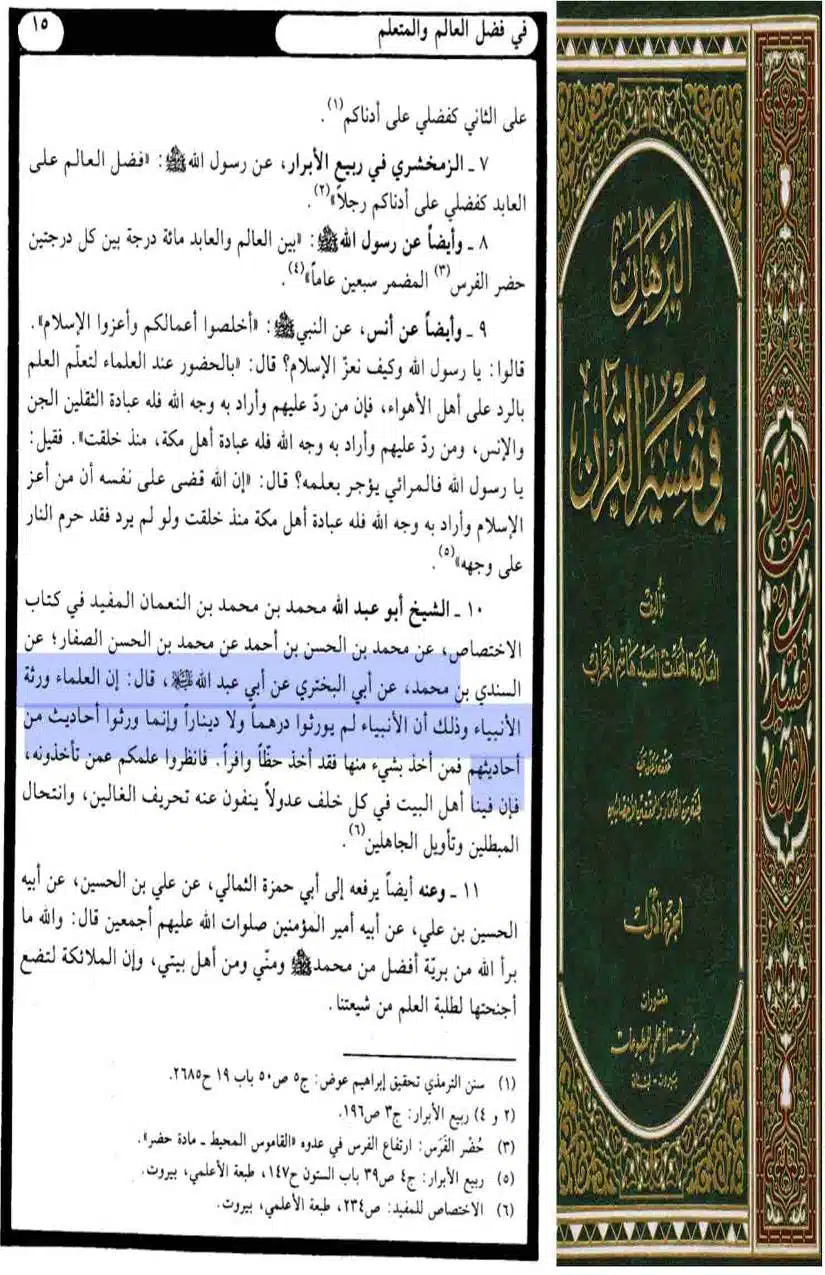 في فضل العالم والمتعلم
١٥
على الثاني كفضلي على أدناكم(١).
٧ ـ الزمخشري في ربيع الأبرار، عن رسول الله ﷺ: «فضل العالم على
العابد كفضلي على أدناكم رجلاً»(٢).
٨ ـ وأيضاً عن رسول الله ﷺ: «بين العالم والعابد مائة درجة بين كل درجتين
حضر الفرس(٣) المضمر سبعين عاماً»(٤).
٩ ـ وأيضاً عن أنس، عن النبي ﷺ: «أخلصوا أعمالكم وأعزوا الإسلام».
قالوا: يا رسول الله وكيف نعزّ الإسلام؟ قال: «بالحضور عند العلماء لتعلّم العلم
بالرد على أهل الأهواء، فإن من ردّ عليهم وأراد به وجه الله فله عبادة الثقلين الجن
والإنس، ومن ردّ عليهم وأراد به وجه الله فله عبادة أهل مكة، منذ خلقت». فقيل:
يا رسول الله فالمرائي يؤجر بعلمه؟ قال: «إن الله قضى على نفسه أن من أعز
الإسلام وأراد به وجه الله فله عبادة أهل مكة منذ خلقت ولو لم يرد فقد حرم النار
على وجهه»(٥).
١٠ ـ الشيخ أبو عبد الله محمد بن محمد بن النعمان المفيد في كتاب
الاختصاص، عن محمد بن الحسن بن أحمد عن محمد بن الحسن الصفار؛ عن
السندي بن محمد، عن أبي البختري عن أبي عبد الله عليه السلام، قال: إن العلماء ورثة
الأنبياء وذلك أن الأنبياء لم يورثوا درهماً ولا ديناراً وإنما ورثوا أحاديث من
أحاديثهم فمن أخذ بشيء منها فقد أخذ حظّاً وافراً. فانظروا علمكم عمن تأخذونه،
فإن فينا أهل البيت في كل خلف عدولاً ينفون عنه تحريف الغالين، وانتحال
المبطلين وتأويل الجاهلين(٦).
١١ ـ وعنه أيضاً يرفعه إلى أبي حمزة الثمالي، عن علي بن الحسين، عن أبيه
الحسين بن علي، عن أبيه أمير المؤمنين صلوات الله عليهم أجمعين قال: والله ما
برأ الله من بريّة أفضل من محمد ﷺ ومنّي ومن أهل بيتي، وإن الملائكة لتضع
أجنحتها لطلبة العلم من شيعتنا.
(١) سنن الترمذي تحقيق إبراهيم عوض: ج٥ ص٥٠ باب ١٩ ح٢٦٨٥.
(٢ و ٤) ربيع الأبرار: ج٣ ص١٩٦.
(٣) حُضْر الفَرَس: ارتفاع الفرس في عدوه «القاموس المحيط ـ مادة حضر».
(٥) ربيع الأبرار: ج٤ ص٣٩ باب الستون ح١٤٧، طبعة الأعلمي، بيروت.
(٦) الاختصاص للمفيد: ص٢٣٤، طبعة الأعلمي، بيروت.
البرهان
في تفسير القرآن
تأليف
العلامة المحدث السيد هاشم البحراني
الجزء الأول
منشورات
مؤسسة الأعلمي للمطبوعات
بيروت - لبنان
البرهان
في
تفسير
القرآن